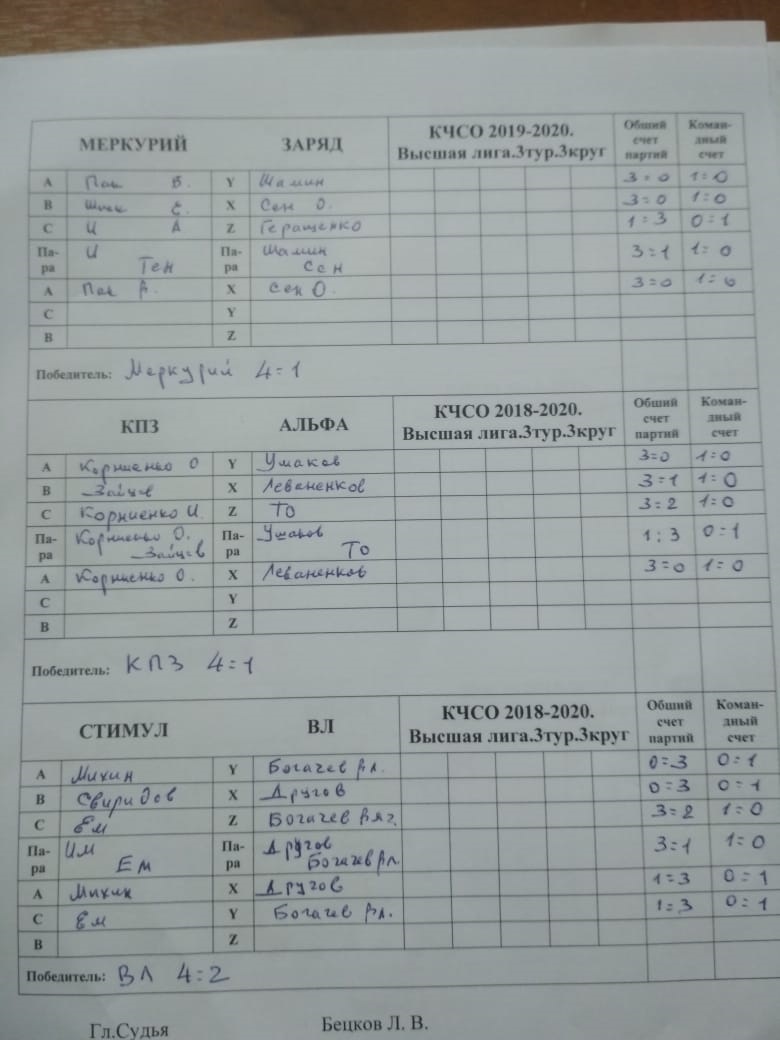 МЕРКУРИЙ ЗАРЯД КЧСО 2019-2020. Высшая лига.3тур.3круг Общий счет партий Коман-дный счет
A Пак В. Y Шамин 3=0 1=0
B Е. X Сен О. 3=0 1=0
C И А Z Геращенко 1=3 0=1
Па-ра И Тен Па-ра Шамин Сен 3=1 1=0
A Пак В. X Сен О. 3=0 1=0
C Y
B Z
Победитель: Меркурий 4=1
КПЗ АЛЬФА КЧСО 2018-2020. Высшая лига.3тур.3круг Общий счет партий Коман-дный счет
A Корниенко О Y Ушаков 3=0 1=0
B Зайцев X Леваненков 3=1 1=0
C Корниенко И. Z То 3=2 1=0
Па-ра Корниенко О. Зайцев Па-ра Ушаков То 1:3 0=1
A Корниенко О. X Леваненков 3=0 1=0
C Y
B Z
Победитель: КПЗ 4=1
СТИМУЛ ВЛ КЧСО 2018-2020. Высшая лига.3тур.3круг Общий счет партий Коман-дный счет
A Михин Y Богачев Вл. 0=3 0=1
B Свиридов X Другов 0=3 0=1
C Ем Z Богачев Вяч. 3=2 1=0
Па-ра Им Ем Па-ра Другов Богачев Вл. 3=1 1=0
A Михин X Другов 1=3 0=1
C Ем Y Богачев Вл. 1=3 0=1
B Z
Победитель: ВЛ 4=2
Гл.Судья Бецков Л. В.